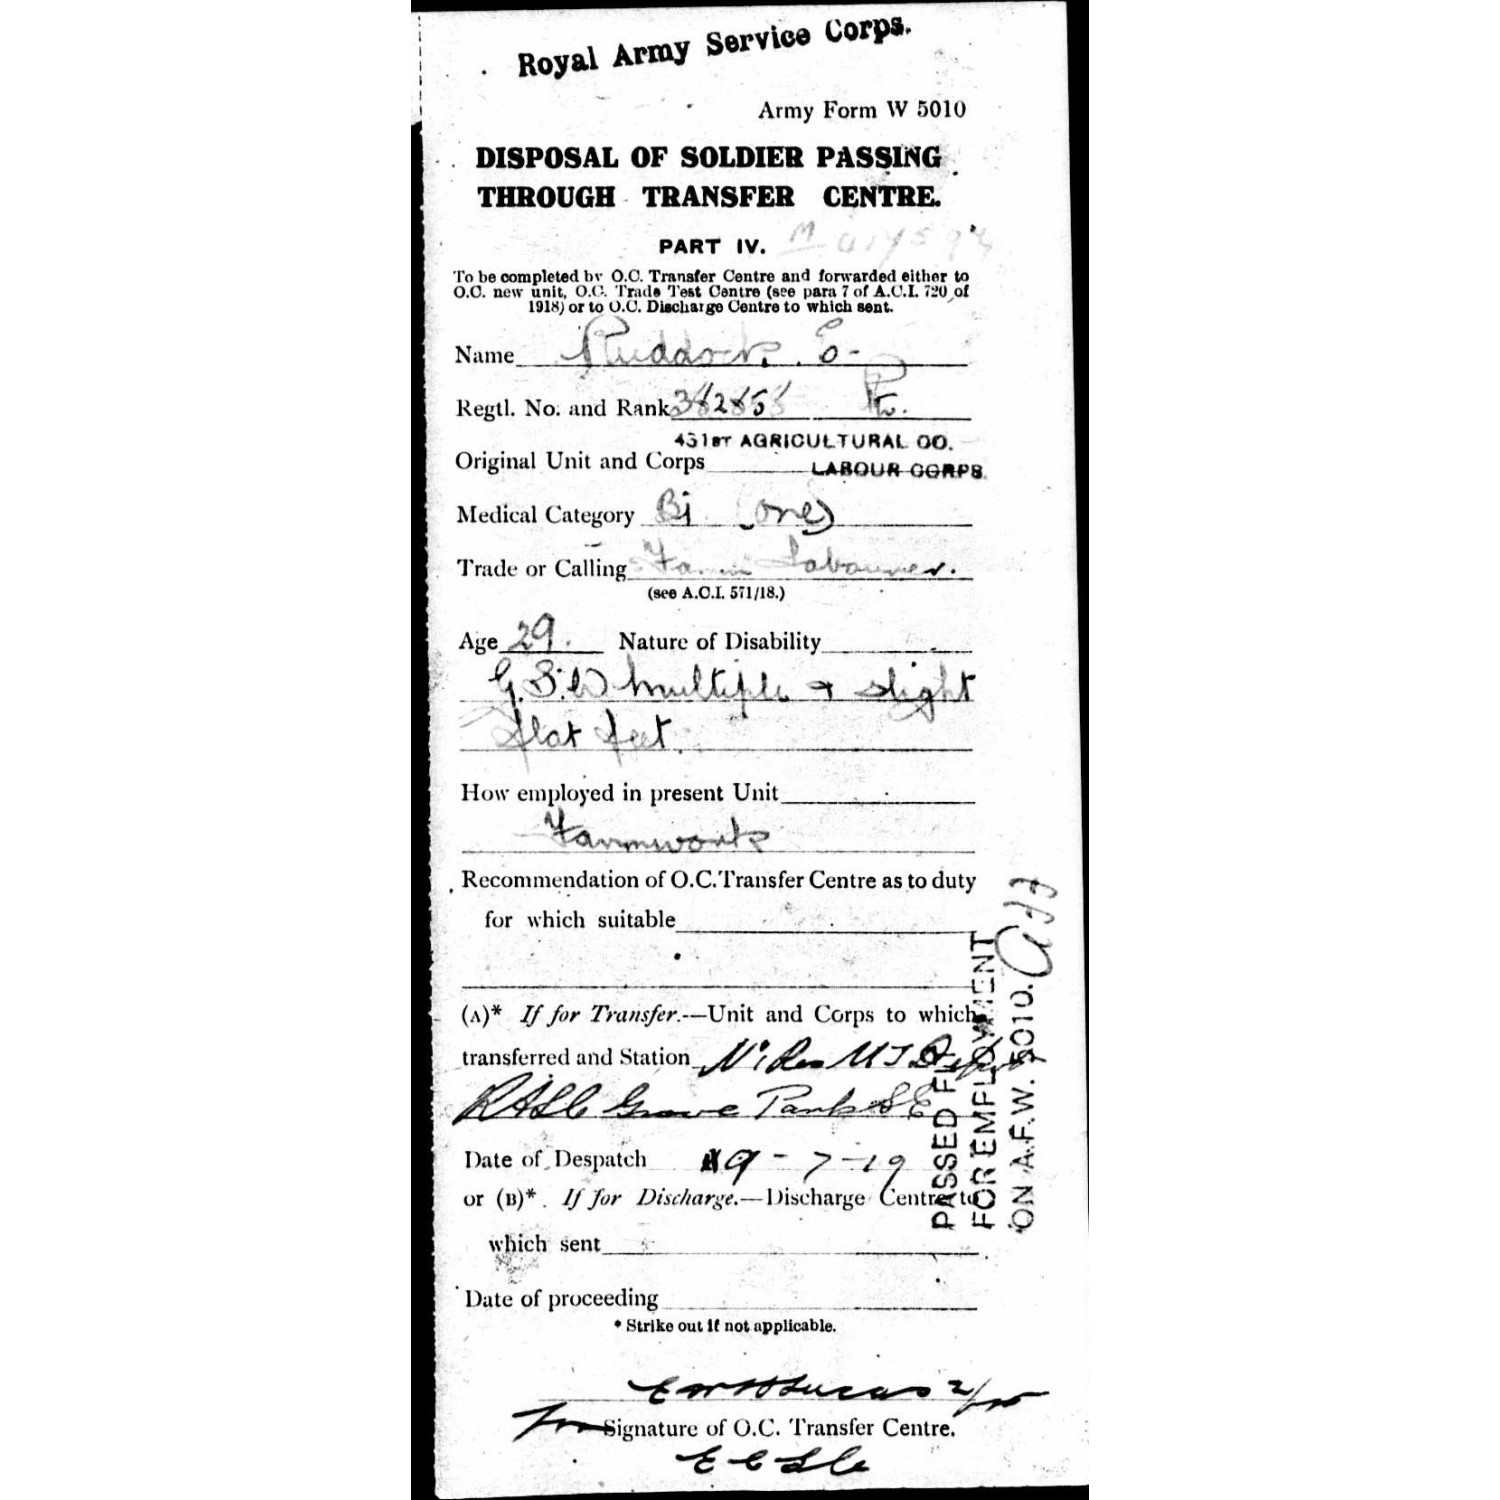 Royal Army Service Corps.
Army Form W 5010
DISPOSAL OF SOLDIER PASSING
THROUGH TRANSFER CENTRE.
PART IV.
To be completed by O.C. Transfer Centre and forwarded either to
O.C. new unit, O.C. Trade Test Centre (see para 7 of A.C.I. 720 of
1918) or to O.C. Discharge Centre to which sent.
Name Ruddock. E-
Regtl. No. and Rank Pte.
451ST AGRICULTURAL CO.
Original Unit and Corps LABOUR CORPS.
Medical Category Bi (one)
Trade or Calling Farm Labourer.
(see A.C.I. 571/18.)
Age 29. Nature of Disability
G.S.W multiple & slight
flat feet.
How employed in present Unit
Farmwork
Recommendation of O.C. Transfer Centre as to duty
for which suitable
(A)* If for Transfer.—Unit and Corps to which
transferred and Station Res M T Depot
RASC Grove Park S E
Date of Despatch 9-7-19
or (B)* If for Discharge.—Discharge Centre to
which sent
Date of proceeding
* Strike out if not applicable.
Lucas 2/Lt
For Signature of O.C. Transfer Centre.
PASSED
FOR EMPLOYMENT
ON A.F.W. 5010.